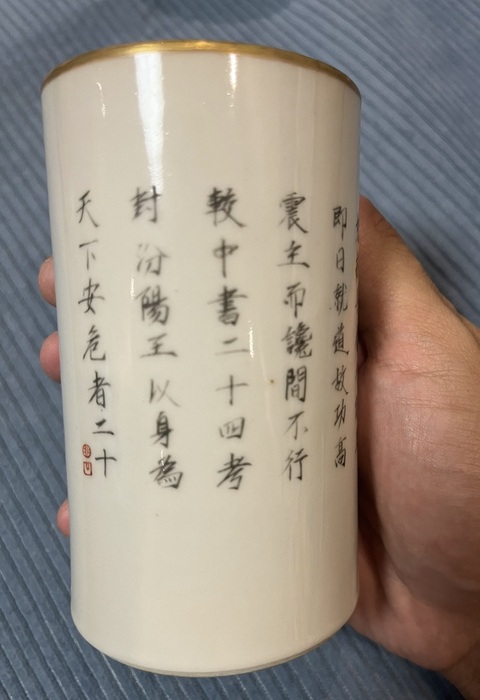 即日就道故功高
震主而讒間不行
較中書二十四考
封汾陽王以身為
天下安危者二十